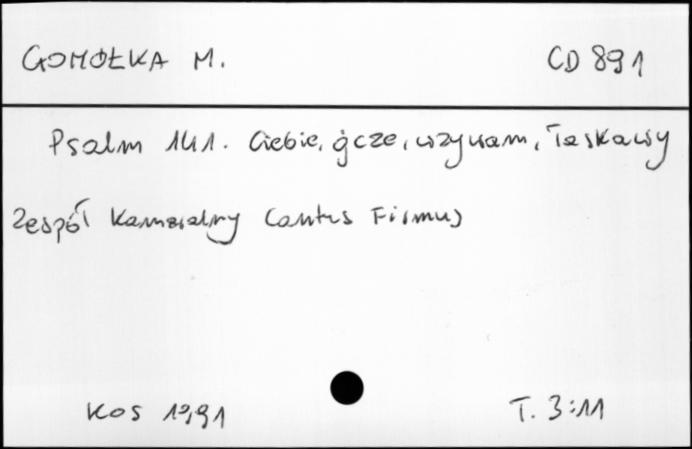 GOMÓŁKA M. CD 891
Psalm 141. Ciebie, ójcze, wzywam, łaskawy
Zespół Kameralny Cantus Firmus
KOS 1991 T. 3:11